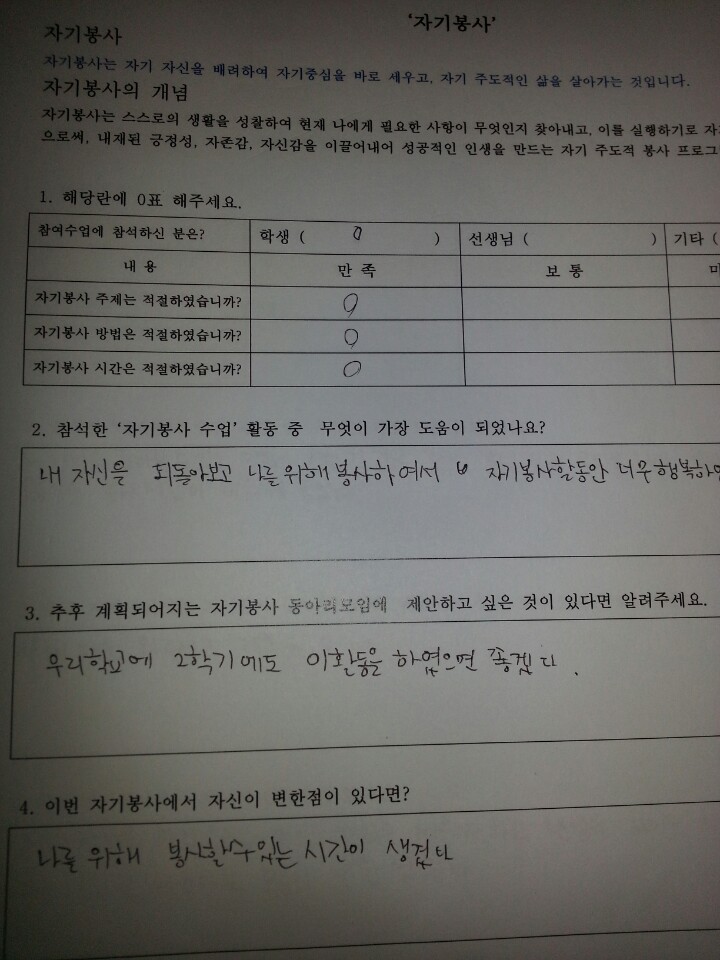 '자기봉사'
자기봉사
자기봉사는 자기 자신을 배려하여 자기중심을 바로 세우고, 자기 주도적인 삶을 살아가는 것입니다.
자기봉사의 개념
자기봉사는 스스로의 생활을 성찰하여 현재 나에게 필요한 사항이 무엇인지 찾아내고, 이를 실행하기로
으로써, 내재된 긍정성, 자존감, 자신감을 이끌어내어 성공적인 인생을 만드는 자기 주도적 봉사
1. 해당란에 0표 해주세요.
참여수업에 참석하신 분은? 학생 ( 0 ) 선생님 ( ) 기타 (
내 용 만 족 보 통
자기봉사 주제는 적절하였습니까? 0
자기봉사 방법은 적절하였습니까? 0
자기봉사 시간은 적절하였습니까? 0
2. 참석한 '자기봉사 수업' 활동 중 무엇이 가장 도움이 되었나요?
내 자신을 되돌아보고 나를 위해 봉사하여서 자기봉사활동안 너무
3. 추후 계획되어지는 자기봉사 동아리모임에 제안하고 싶은 것이 있다면 알려주세요.
우리학교에 2학기에도 이활동을 하였으면 좋겠다.
4. 이번 자기봉사에서 자신이 변한점이 있다면?
나를 위해 봉사할수있는 시간이 생겼다